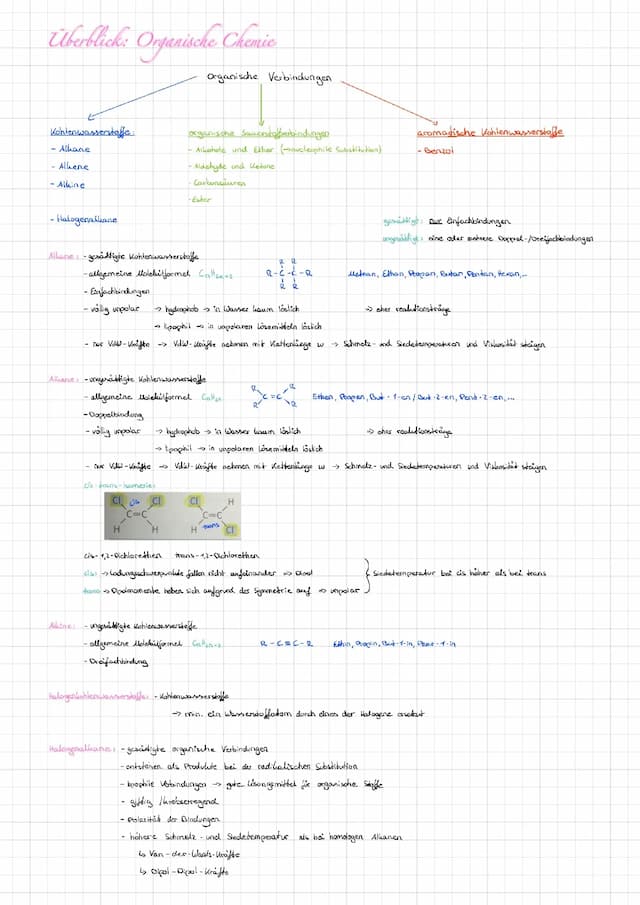 Überblick: Organische Chemie
organische Verbindungen
Kohlenwasserstoffe:
- Alkane
- Alkene
- Alkine
- Halogenalkane
organische Sauerstoffverbindungen
- Alkohole und Ether (→nucleophile Substitution)
- Aldehyde und Ketone
- Carbonsäuren
- Ester
aromatische Kohlenwasserstoffe
- Benzol
gesättigt: nur Einfachbindungen
ungesättigt: eine oder mehrere Doppel-/Dreifachbindungen
Alkane: - gesättigte Kohlenwasserstoffe
- allgemeine Molekülformel CnH2n+2 Methan, Ethan, Propan, Butan, Pentan, Hexan,...
R R
R-C-C-R
R R
- Einfachbindungen
- völlig unpolar → hydrophob → in Wasser kaum löslich → eher reaktionsträge
→ lipophil → in unpolaren Lösemitteln löslich
- nur VdW-Kräfte → VdW-Kräfte nehmen mit Kettenlänge zu → Schmelz- und Siedetemperaturen und Viskosität steigen
Alkene: - ungesättigte Kohlenwasserstoffe
- allgemeine Molekülformel CnH2n Ethen, Propen, But-1-en/But-2-en, Pent-2-en,...
R R
C=C
R R
- Doppelbindung
- völlig unpolar → hydrophob → in Wasser kaum löslich → eher reaktionsträge
→ lipophil → in unpolaren Lösemitteln löslich
- nur VdW-Kräfte → VdW-Kräfte nehmen mit Kettenlänge zu → Schmelz- und Siedetemperaturen und Viskosität steigen
cis-trans-Isomerie:
Cl cis Cl Cl H
C=C C=C
H H H trans Cl
cis-1,2-Dichlorethen trans-1,2-Dichlorethen
cis: → Ladungsschwerpunkte fallen nicht aufeinander ⇒ Dipol
trans → Dipolmomente heben sich aufgrund des Symmetrie auf ⇒ unpolar
Siedetemperatur bei cis höher als bei trans
Alkine: - ungesättigte Kohlenwasserstoffe
- allgemeine Molekülformel CnH2n-2 R-C≡C-R Ethin, Propin, But-1-in, Pent-1-in
- Dreifachbindung
Halogenkohlenwasserstoffe: - Kohlenwasserstoffe
→ min. ein Wasserstoffatom durch eines der Halogene ersetzt
Halogenalkane: - gesättigte organische Verbindungen
- entstehen als Produkte bei der radikalischen Substitution
- lipophile Verbindungen → gute Lösungsmittel für organische Stoffe
- giftig /krebserregend
- Polarität der Bindungen
- höhere Schmelz- und Siedetemperatur als bei homologen Alkanen
↳ Van-der-Waals-Kräfte
↳ Dipol-Dipol-Kräfte